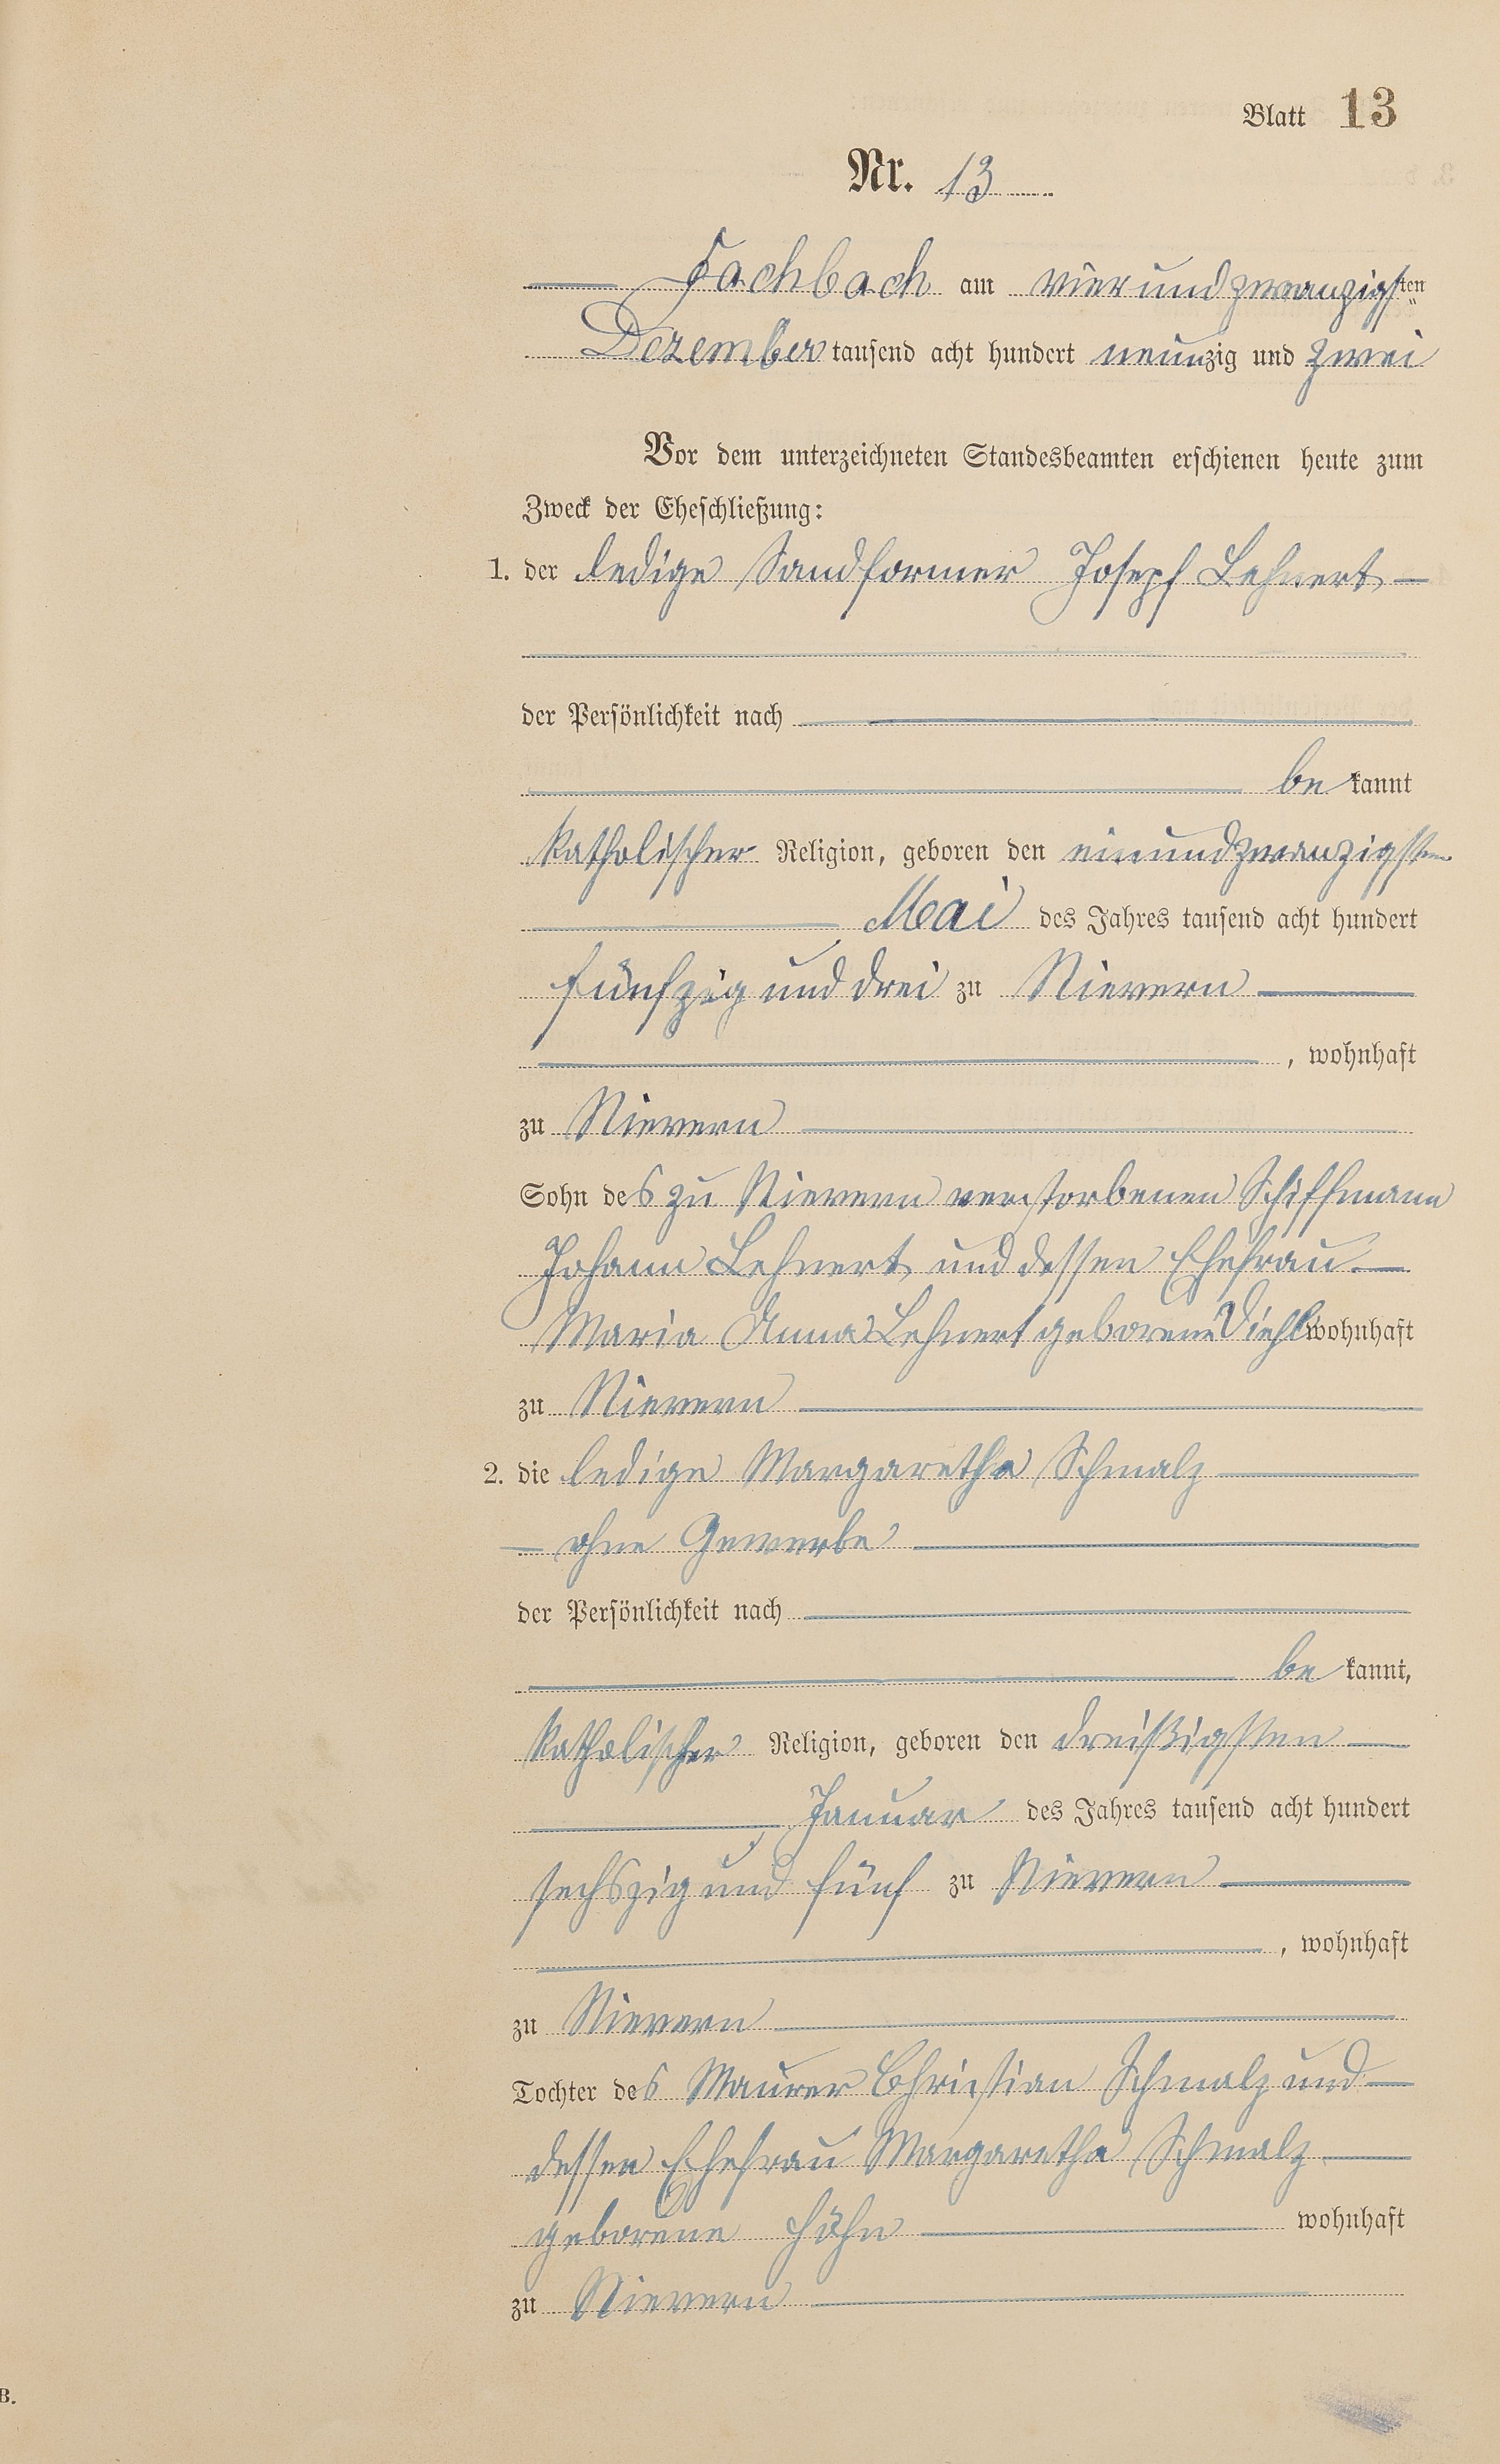 Blatt 13
Nr. 13
Fachbach am vierundzwanzigsten
Dezember tausend acht hundert neunzig und zwei
Vor dem unterzeichneten Standesbeamten erschienen heute zum
Zweck der Eheschließung:
1. der ledige Sandformer Joseph Lehnert
der Persönlichkeit nach
be kannt
katholischer Religion, geboren den einundzwanzigsten
Mai des Jahres tausend acht hundert
fünfzig und drei zu Nievern
, wohnhaft
zu Nievern
Sohn des zu Nievern verstorbenen Schiffmann
Johann Lehnert und dessen Ehefrau
Maria Anna Lehnert geborene Diehl wohnhaft
zu Nievern
2. die ledige Margaretha Schmalz
ohne Gewerbe
der Persönlichkeit nach
be kannt,
katholischer Religion, geboren den dreißigsten
Januar des Jahres tausend acht hundert
sechszig und fünf zu Nievern
, wohnhaft
zu Nievern
Tochter des Maurer Christian Schmalz und
dessen Ehefrau Margaretha Schmalz
geborene Höhn wohnhaft
zu Nievern
B.